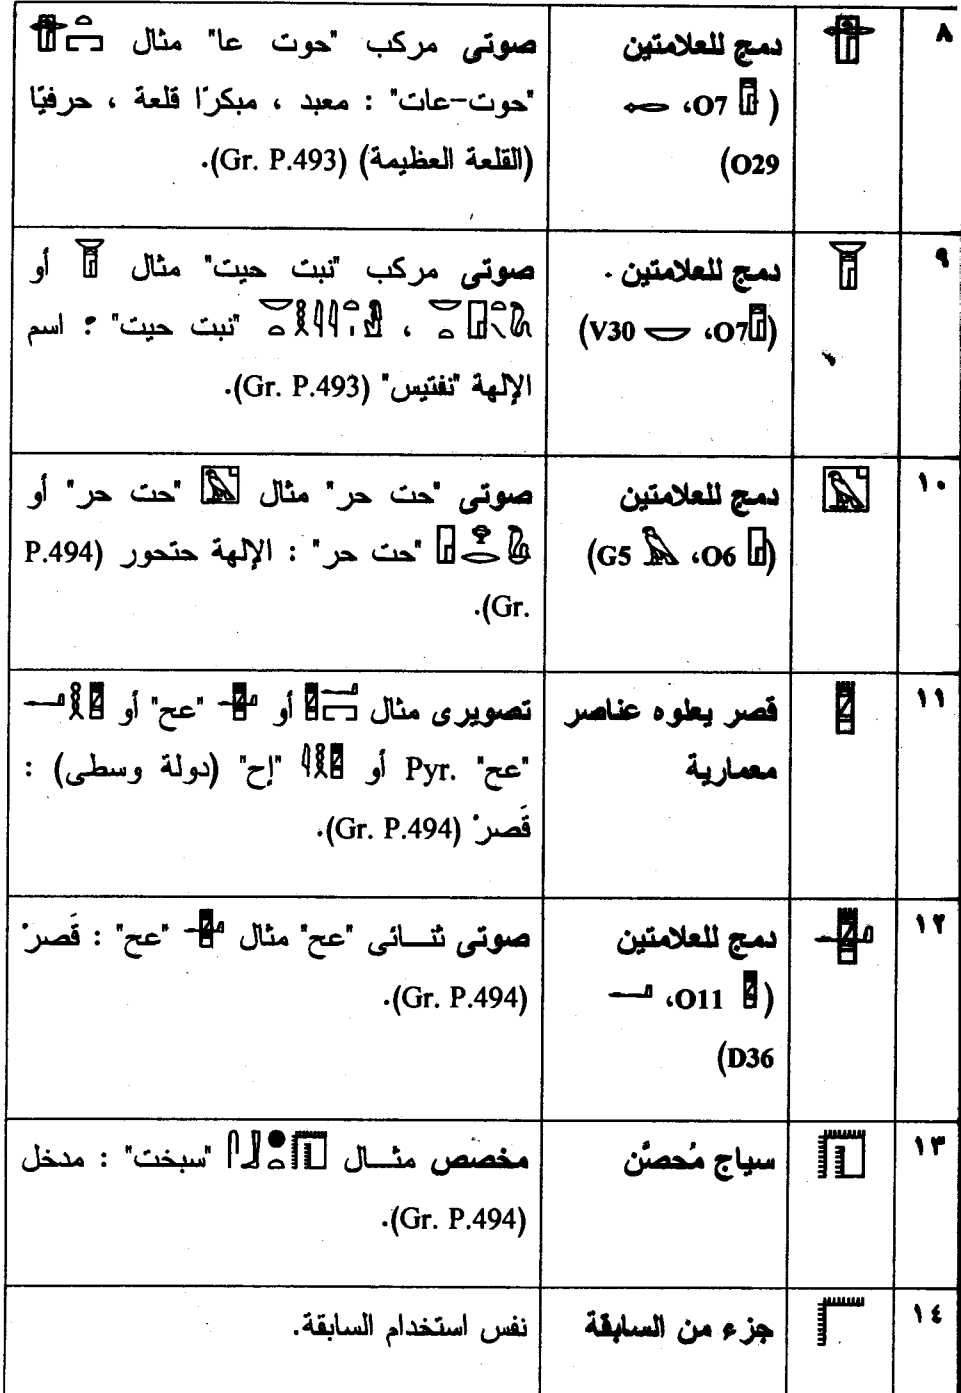 ٨
دمج للعلامتين
( O7، 
O29)
صوتى مركب "حوت عا" مثال
"حوت-عات" : معبد ، مبكرًا قلعة ، حرفيًا
(القلعة العظيمة) (Gr. P.493).
٩
دمج للعلامتين .
(O7، V30)
صوتى مركب "نبت حيت" مثال أو
، "نبت حيت" : اسم
الإلهة "نفتيس" (Gr. P.493).
١٠
دمج للعلامتين
(O6، G5)
صوتى "حت حر" مثال "حت حر" أو
"حت حر" : الإلهة حتحور (P.494
Gr.).
١١
قصر يعلوه عناصر
معمارية
تصويرى مثال أو "عح" أو
"عح" Pyr. أو "إح" (دولة وسطى) :
قَصر" (Gr. P.494).
١٢
دمج للعلامتين
( O11، 
D36)
صوتى ثنائى "عح" مثال "عح" : قَصر"
(Gr. P.494).
١٣
سياج مُحصَّن
مخصص مثال "سبخت" : مدخل
(Gr. P.494).
١٤
جزء من السابقة
نفس استخدام السابقة.